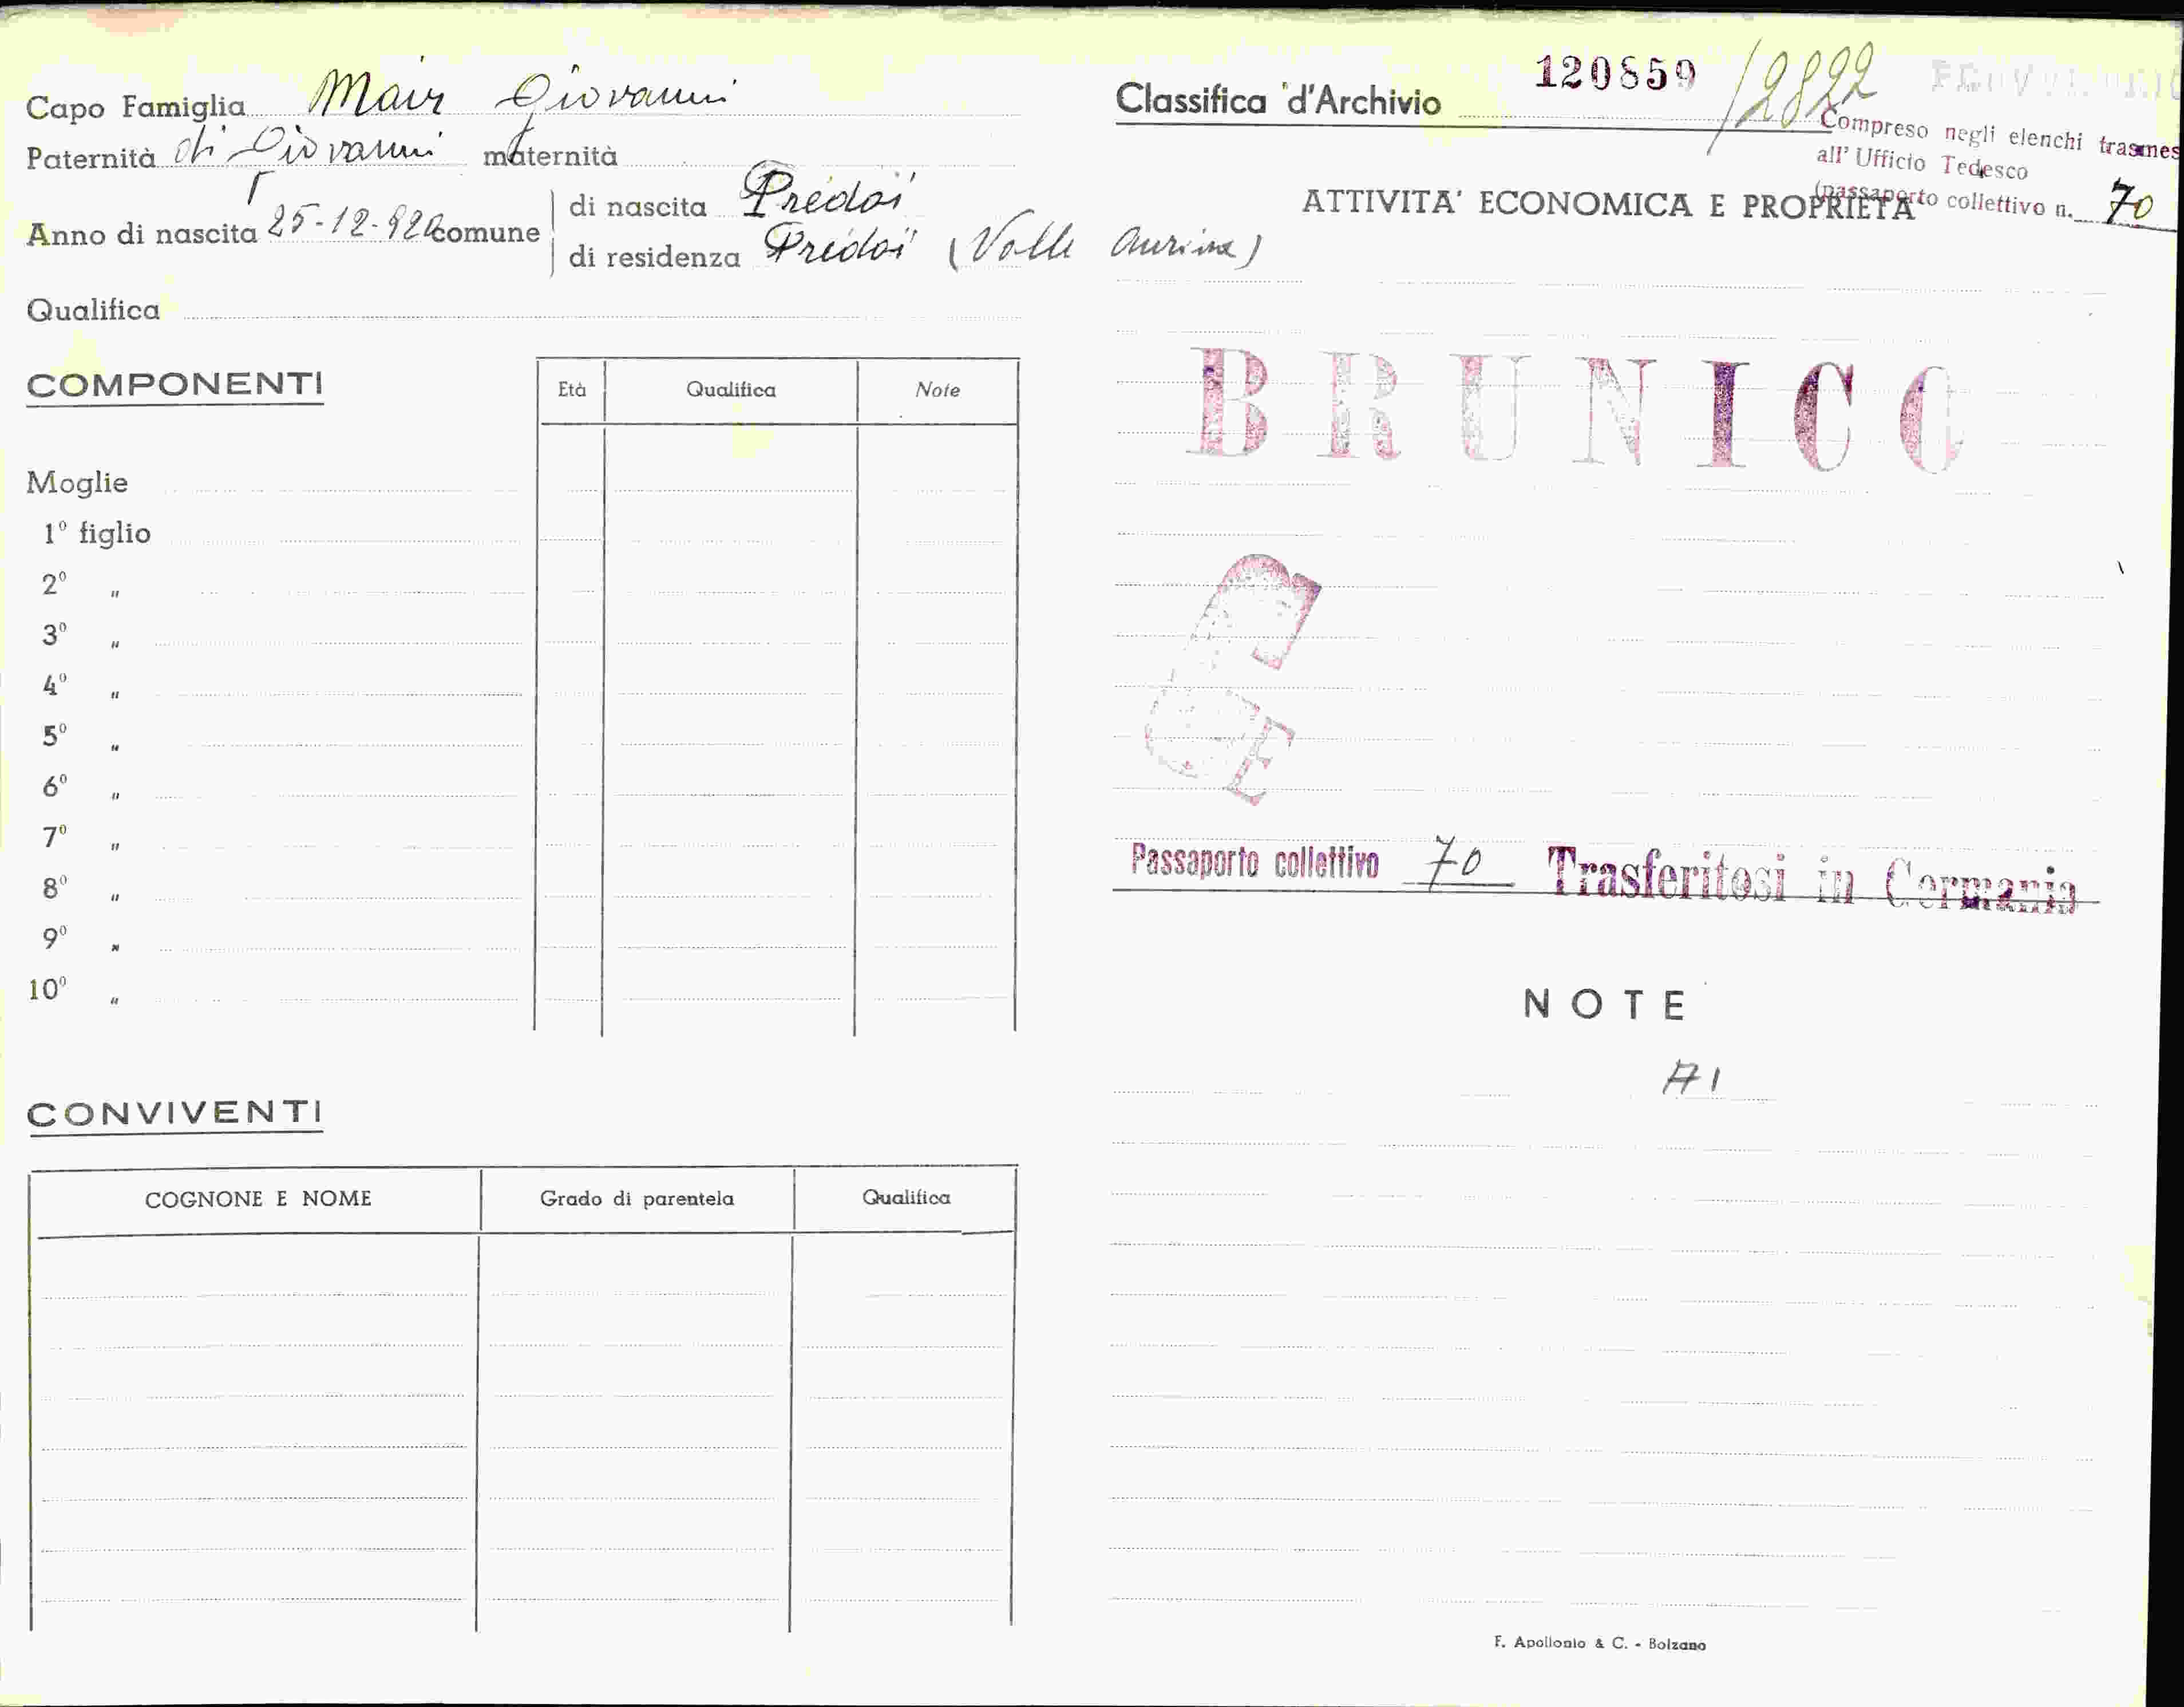 Capo Famiglia Mair Giovanni
Paternità di Giovanni maternità
Anno di nascita 25-12-920 comune
di nascita Predoi
di residenza Predoi (Valle Aurina)
Qualifica
COMPONENTI
Età Qualifica Note
Moglie
1° figlio
2° "
3° "
4° "
5° "
6° "
7° "
8° "
9° "
10° "
CONVIVENTI
COGNONE E NOME Grado di parentela Qualifica
Classifica d'Archivio 120859 /2822
Compreso negli elenchi trasmes
all' Ufficio Tedesco
(passaporto collettivo n. 70
ATTIVITA' ECONOMICA E PROPRIETA'
BRUNICO
Passaporto collettivo 70 Trasferitosi in Germania
NOTE
A1
F. Apollonio & C. - Bolzano